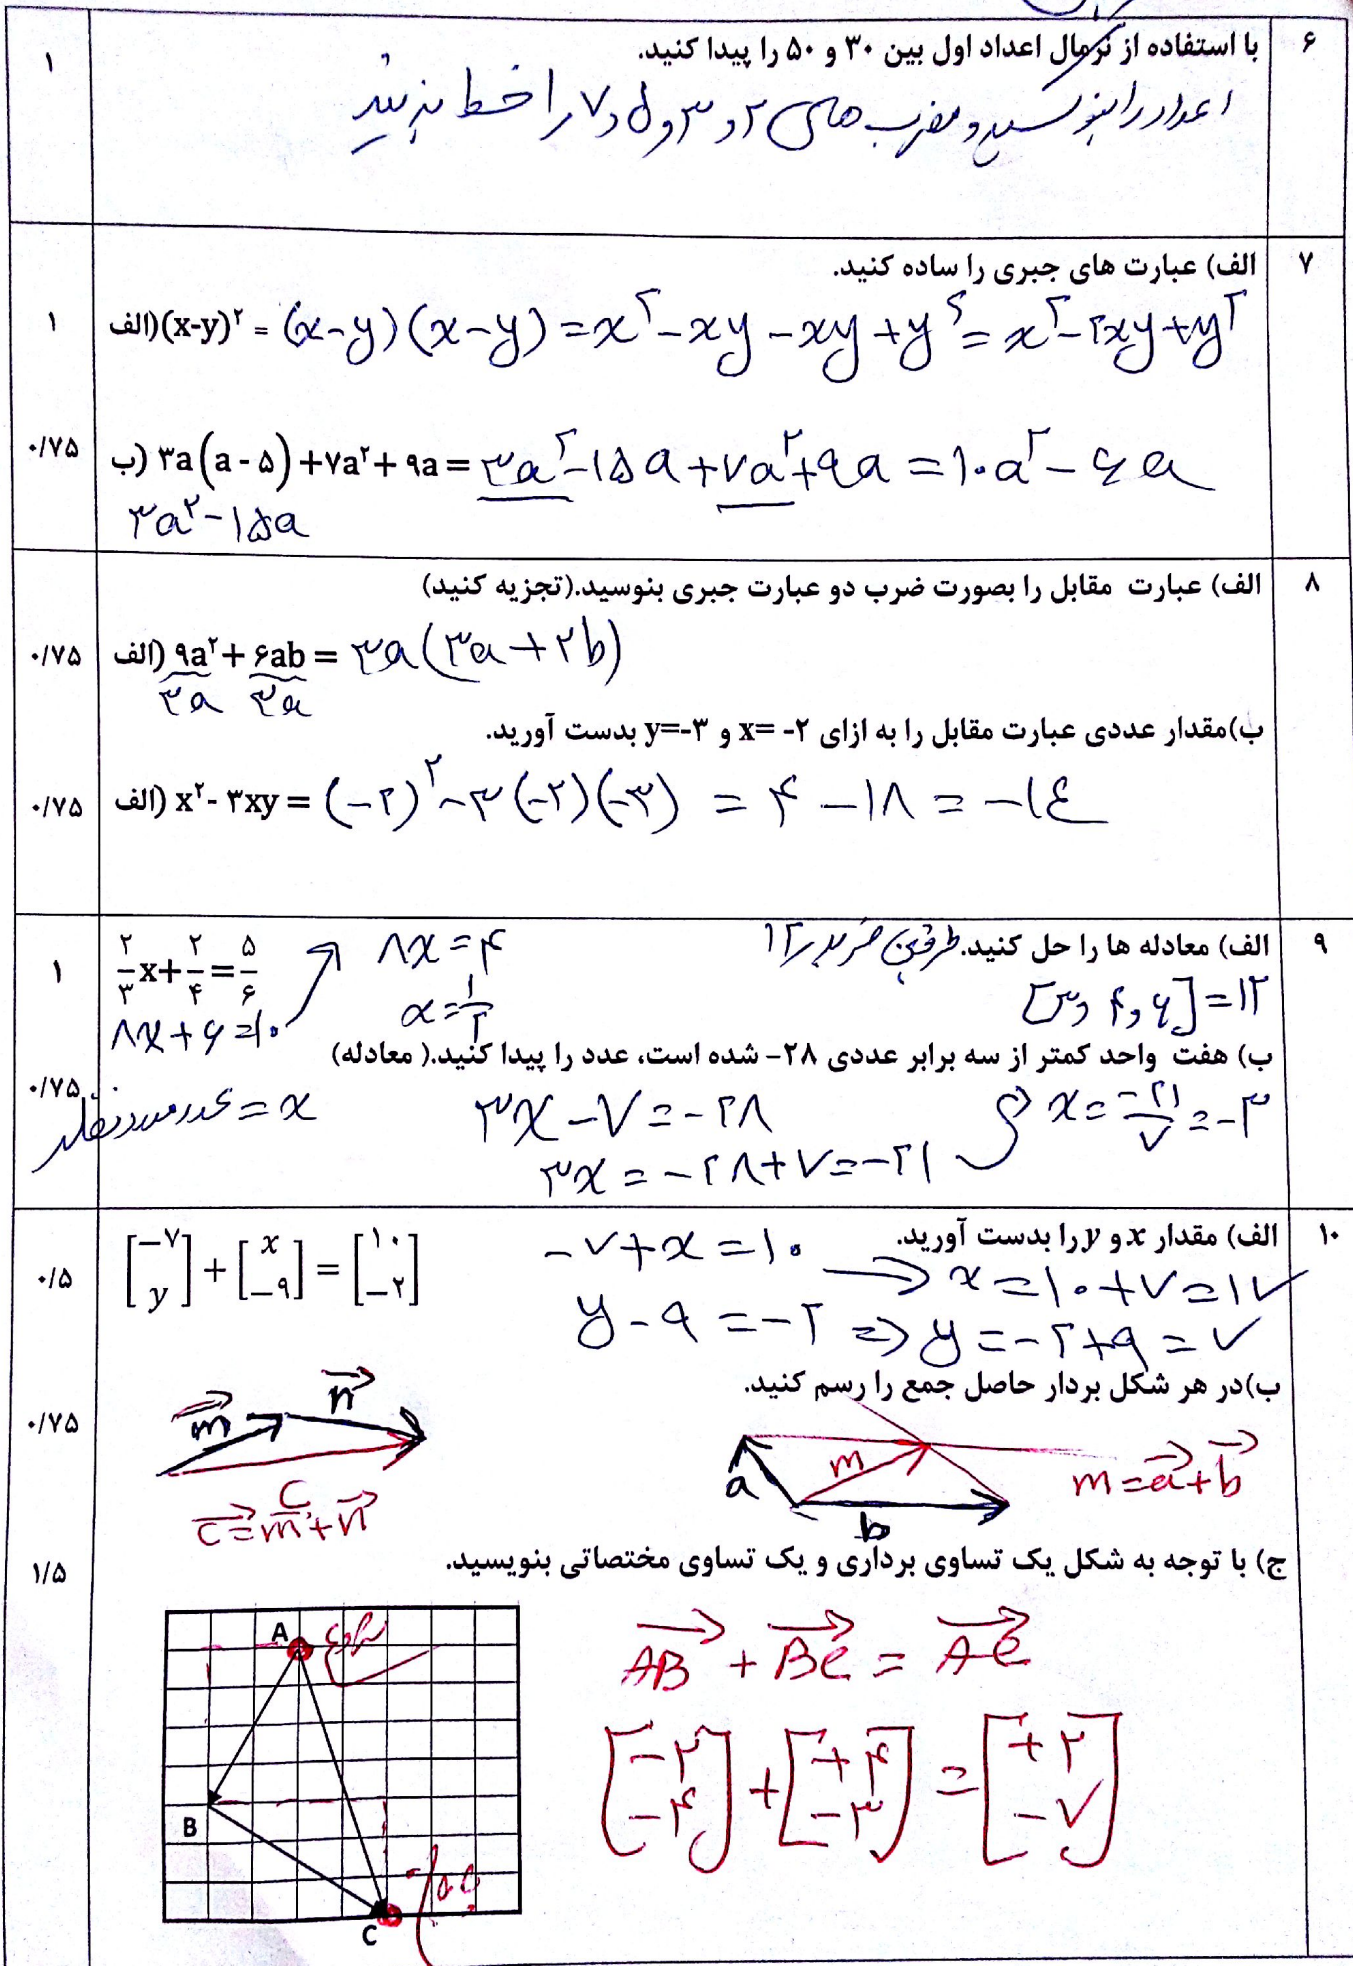 ۶ با استفاده از نرمال اعداد اول بین ۳۰ و ۵۰ را پیدا کنید. ۱
اعداد را بنویسیم و مضرب های ۲ و ۳ و ۵ و ۷ را خط بزنید
۷ الف) عبارت های جبری را ساده کنید.
۱ الف) (x-y)² = (x-y)(x-y) = x² - xy - xy + y² = x² - ۲xy + y²
۰/۷۵ ب) ۳a(a - ۵) + ۷a² + ۹a = ۳a² - ۱۵a + ۷a² + ۹a = ۱۰a² - ۶a
۳a² - ۱۵a
۸ الف) عبارت مقابل را بصورت ضرب دو عبارت جبری بنوسید.(تجزیه کنید)
۰/۷۵ الف) ۹a² + ۶ab = ۳a(۳a + ۲b)
۳a ۳a
ب)مقدار عددی عبارت مقابل را به ازای x= -۲ و y=-۳ بدست آورید.
۰/۷۵ الف) x² - ۳xy = (-۲)² - ۳(-۲)(-۳) = ۴ - ۱۸ = -۱۴
۹ الف) معادله ها را حل کنید. طرفین ضربدر ۱۲
۱ ۲/۳ x + ۲/۴ = ۵/۶ ۸x = ۴
[۳ و ۴ و ۶] = ۱۲
۸x + ۶ = ۱۰ x = ۱/۲
ب) هفت واحد کمتر از سه برابر عددی ۲۸- شده است، عدد را پیدا کنید.( معادله)
۰/۷۵ عدد مورد نظر = x ۳x - ۷ = -۲۸ x = -۲۱/۷ = -۳
۳x = -۲۸ + ۷ = -۲۱
۱۰ الف) مقدار x و y را بدست آورید.
۰/۵ [-۷ y] + [x -۹] = [۱۰ -۲] -۷ + x = ۱۰ → x = ۱۰ + ۷ = ۱۷
y - ۹ = -۲ ⇒ y = -۲ + ۹ = ۷
ب)در هر شکل بردار حاصل جمع را رسم کنید.
۰/۷۵ m n
a m b m = a + b
C
c = m + n
ج) با توجه به شکل یک تساوی برداری و یک تساوی مختصاتی بنویسید.
۱/۵
A B C
AB + BC = AC
[-۲ -۴] + [+۴ -۳] = [+۲ -۷]